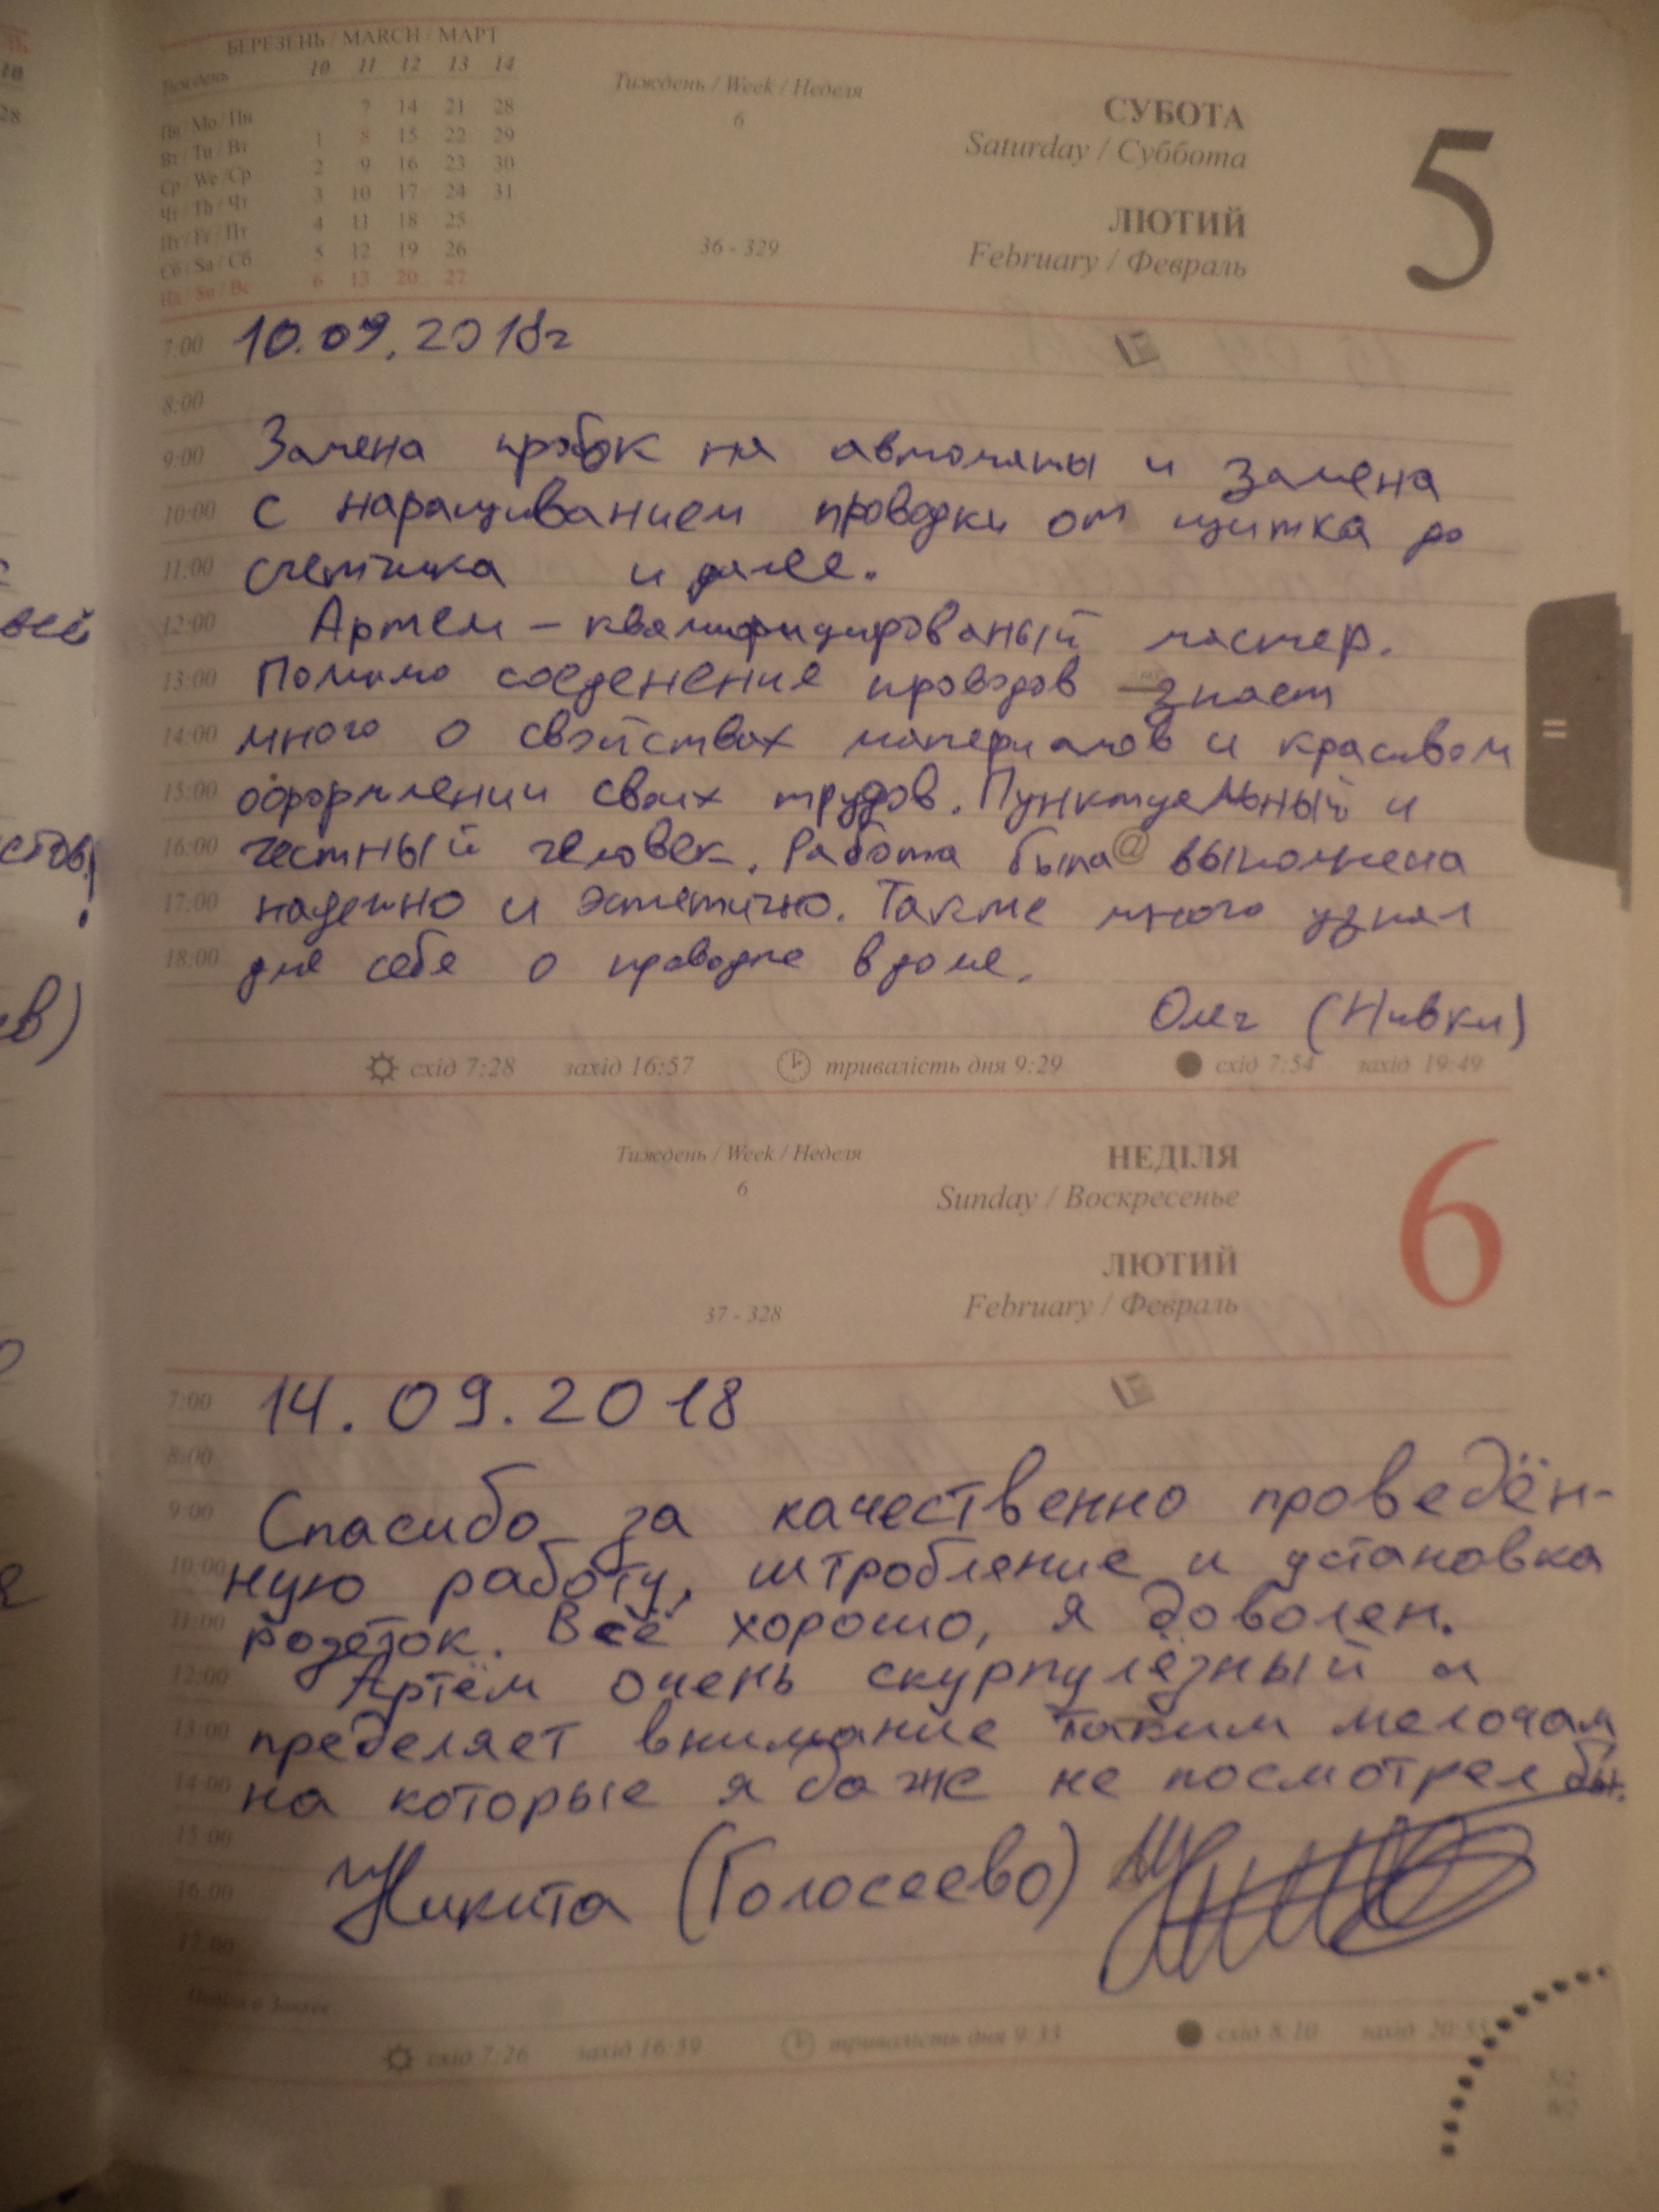 БЕРЕЗЕНЬ / MARCH / МАРТ
Тиждень 10 11 12 13 14
Пн / Mo / Пн 7 14 21 28
Вт / Tu / Вт 1 8 15 22 29
Ср / We / Ср 2 9 16 23 30
Чт / Th / Чт 3 10 17 24 31
Пт / Fr / Пт 4 11 18 25
Сб / Sa / Сб 5 12 19 26
Нд / Su / Вс 6 13 20 27
Тиждень / Week / Неделя
6
36 - 329
СУБОТА
Saturday / Суббота
ЛЮТИЙ
February / Февраль
5
7:00 10.09.2018г
8:00
9:00 Замена пробок на автоматы и замена
10:00 с наращиванием проводки от щитка до
11:00 счетчика и далее.
12:00 Артем – квалифицированый мастер.
13:00 Помимо соеденения проводов знает
14:00 много о свойствах материалов и красивом
15:00 оформлении своих трудов. Пунктуельный и
16:00 честный человек. Работа была @ выполнена
17:00 надежно и эстетично. Также много узнал
18:00 для себя о проводке в доме.
Олег (Нивки)
схід 7:28 захід 16:57 тривалість дня 9:29 схід 7:54 захід 19:49
Тиждень / Week / Неделя
6
37 - 328
НЕДІЛЯ
Sunday / Воскресенье
ЛЮТИЙ
February / Февраль
6
7:00 14.09.2018
8:00
9:00 Спасибо за качественно проведён-
10:00 ную работу, штробление и установка
11:00 розеток. Всё хорошо, я доволен.
12:00 Артём очень скурпулёзный и
13:00 пределяет внимание таким мелочам
14:00 на которые я даже не посмотрел бы.
15:00
16:00 Никита (Голосеево)
17:00
схід 7:26 захід 16:59 тривалість дня 9:33 схід 8:10